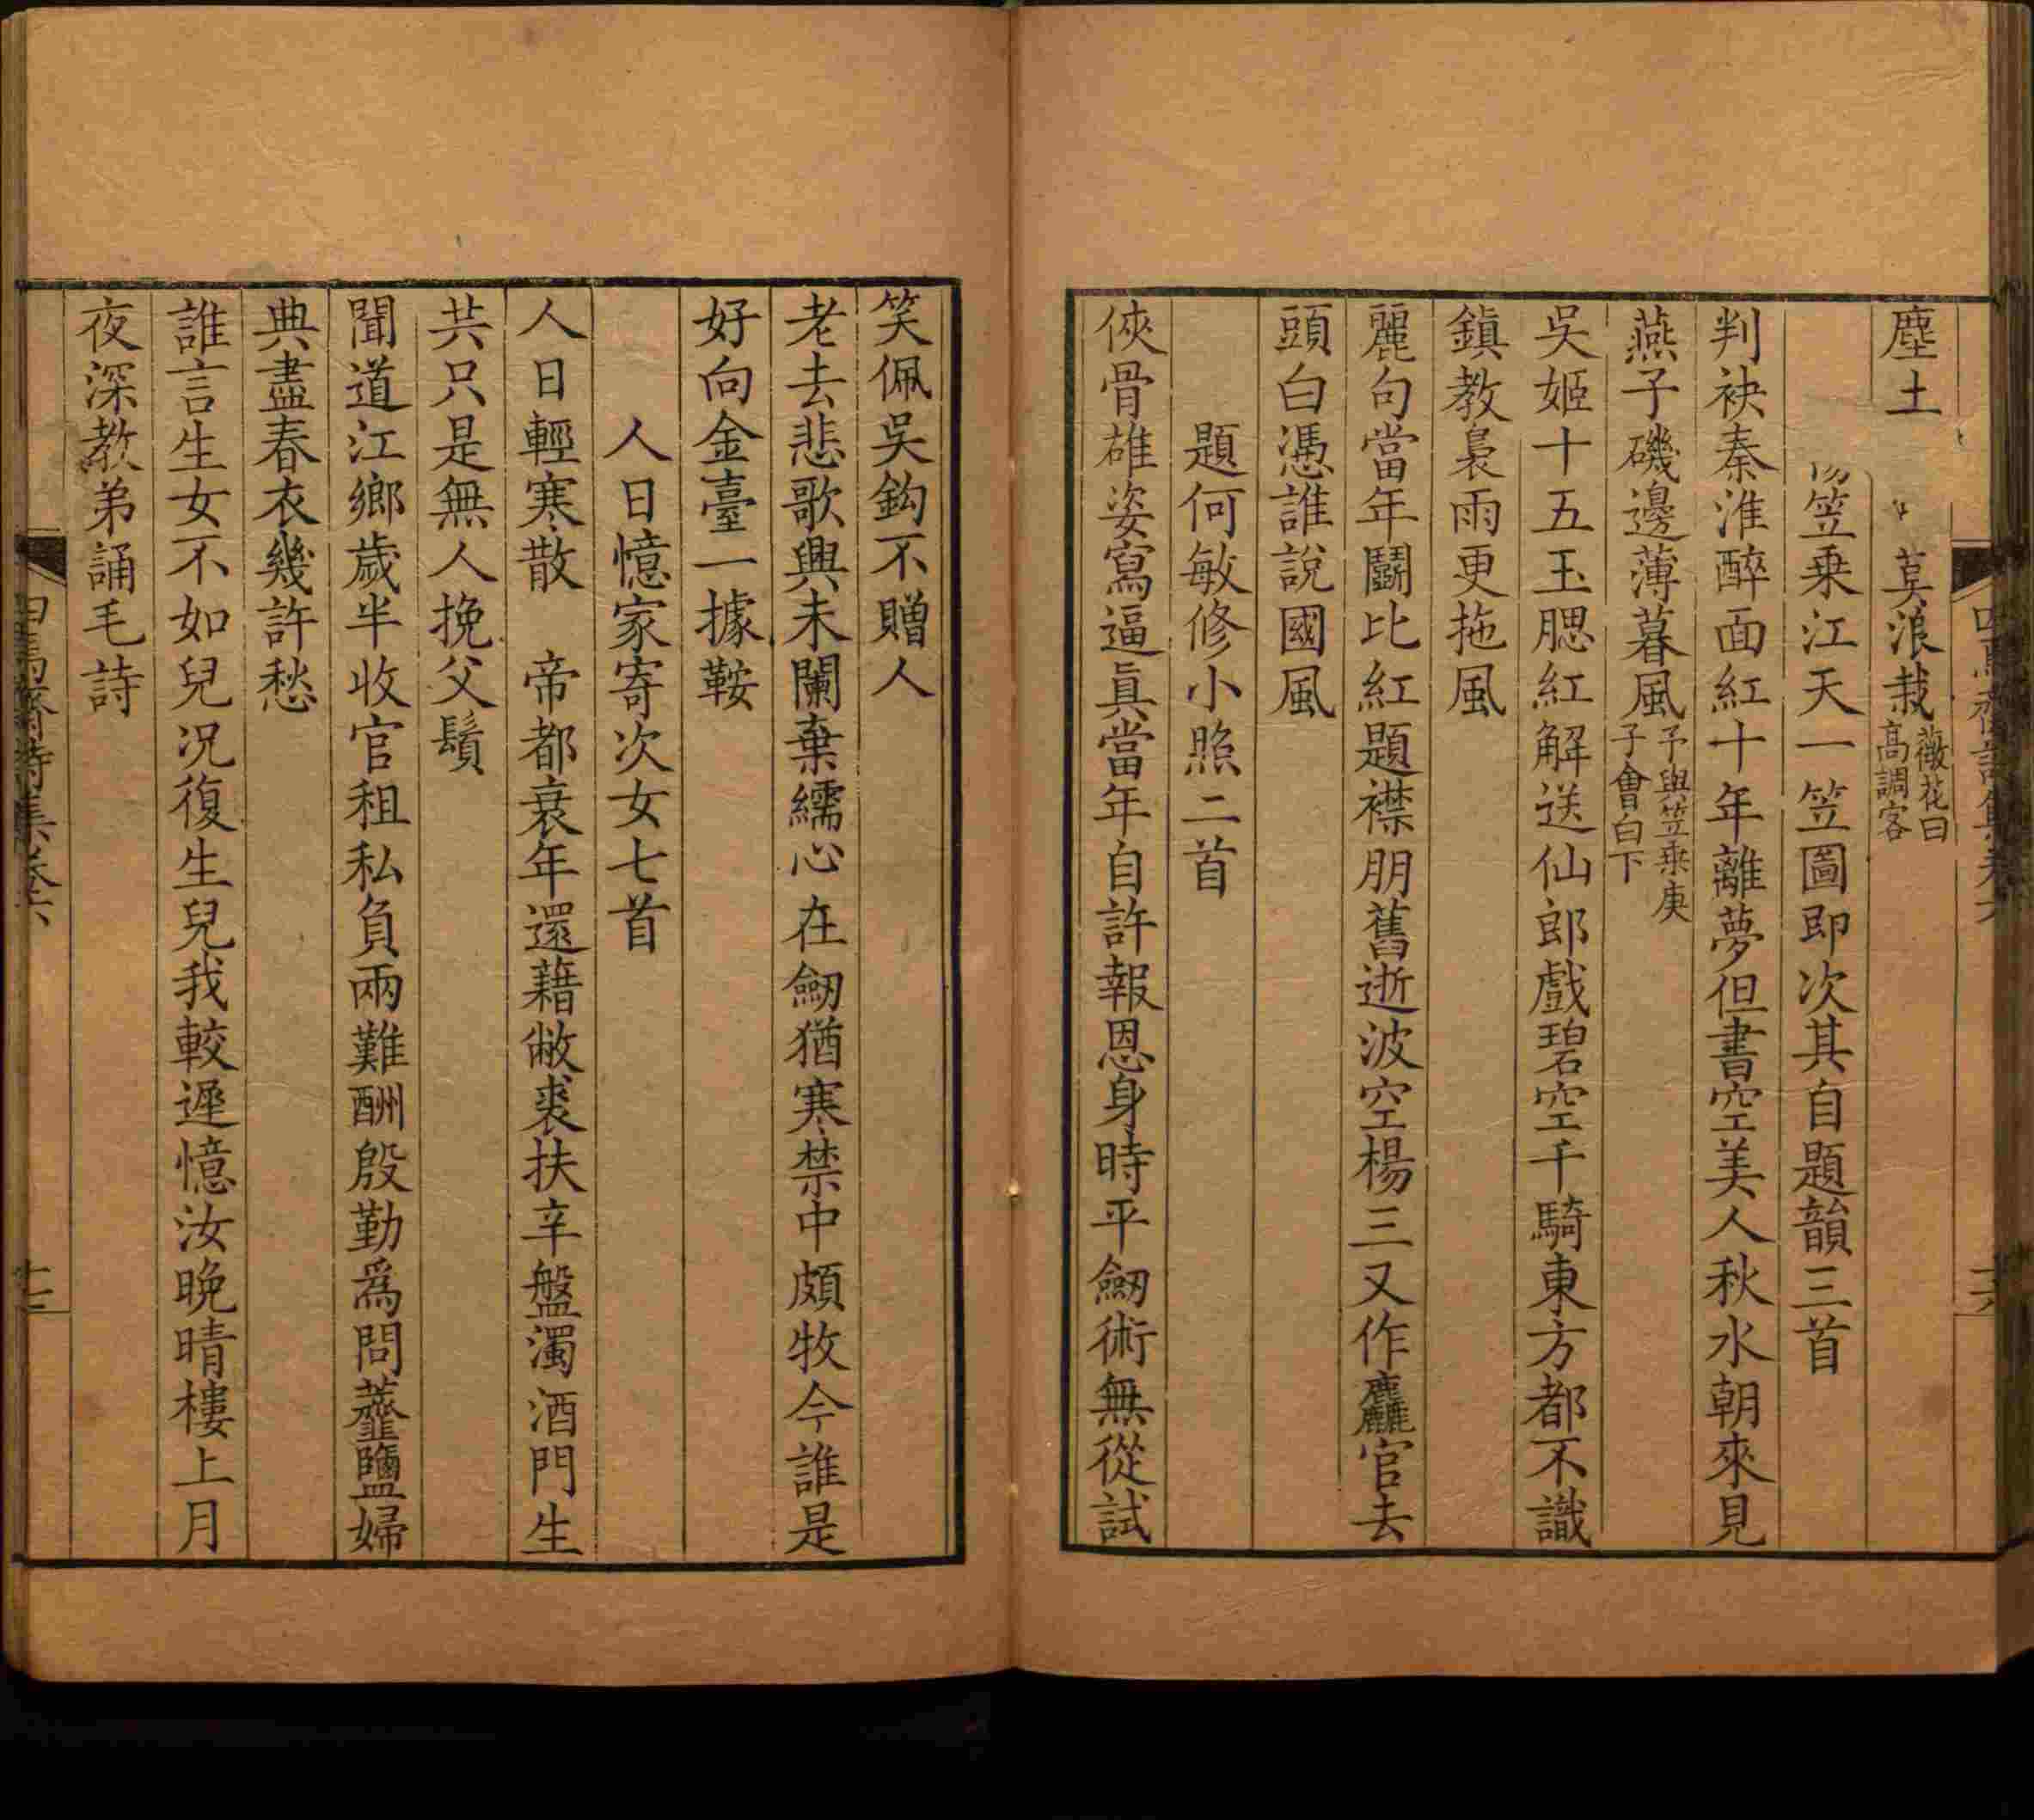 塵土 莫浪栽 薇花曰高調客
笠乗江天一笠圖即次其自題韻三首
判袂秦淮醉面紅十年離夢但書空美人秋水朝來見
燕子磯邊薄暮風 予與笠乗庚子會白下
吳姬十五玉腮紅解送仙郎戲碧空千騎東方都不識
鎮教裊雨更拖風
麗句當年鬭比紅題襟朋舊逝波空楊三又作麤官去
頭白憑誰說國風
題何敏修小照二首
俠骨雄姿寫逼眞當年自許報恩身時平劒術無從試
笑佩吳鈎不贈人
老去悲歌興未闌棄繻心在劒猶寒禁中頗牧今誰是
好向金臺一據鞍
人日憶家寄次女七首
人日輕寒散 帝都衰年還藉敝裘扶辛盤濁酒門生
共只是無人挽父鬚
聞道江鄉歲半收官租私負兩難酬殷勤爲問虀鹽婦
典盡春衣幾許愁
誰言生女不如兒况復生兒我較遲憶汝晚晴樓上月
夜深教弟誦毛詩